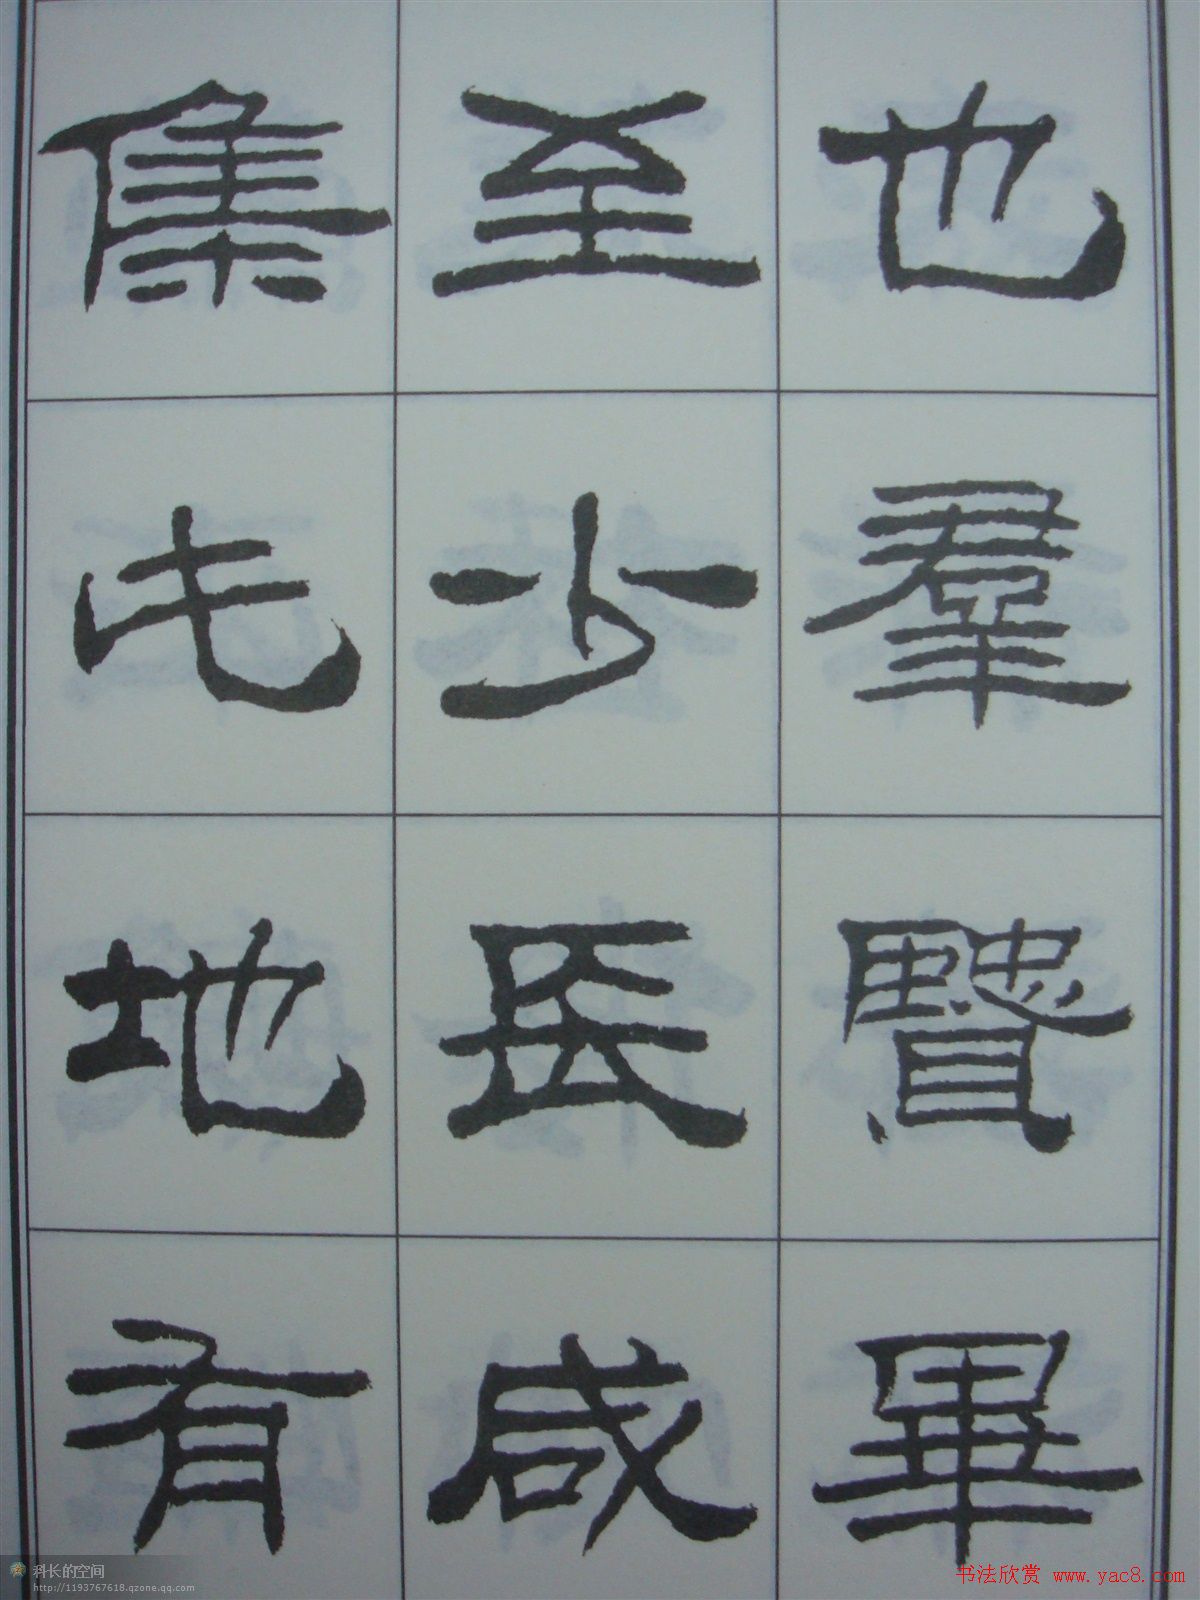 也羣賢畢
至少長咸
集此地有
科长的空间
http://1193767618.qzone.qq.com
书法欣赏 www.yac8.com